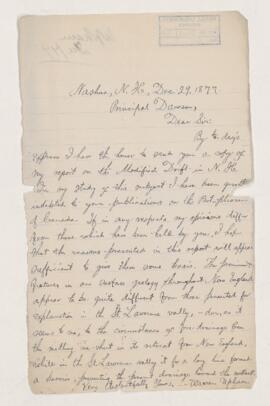 Upham
Nashua, N. H., Dec 29, 1877
Principal Dawson,
Dear Sir:
By to-day's
Express I have the honor to send you a copy of
my report on the Modified Drift in N. H.
In my study of this subject I have been greatly
indebted to your publications on the Post-pliocene
of Canada. If in any respects my opinions differ
from those which have been held by you, I hope
that the reasons presented in this report will appear
sufficient to give them some basis. The prominent
features in our surface geology throughout New England
appear to be quite different from those presented for
explanation in the St Lawrence valley, - due, as it
seems to me, to the circumstance of free drainage from
the melting ice-sheet in its retreat from New England,
while in the St. Lawrence valley it for a long time formed
a barrier, preventing the present drainage toward the northeast.
Very respectfully Yours, Warren Upham